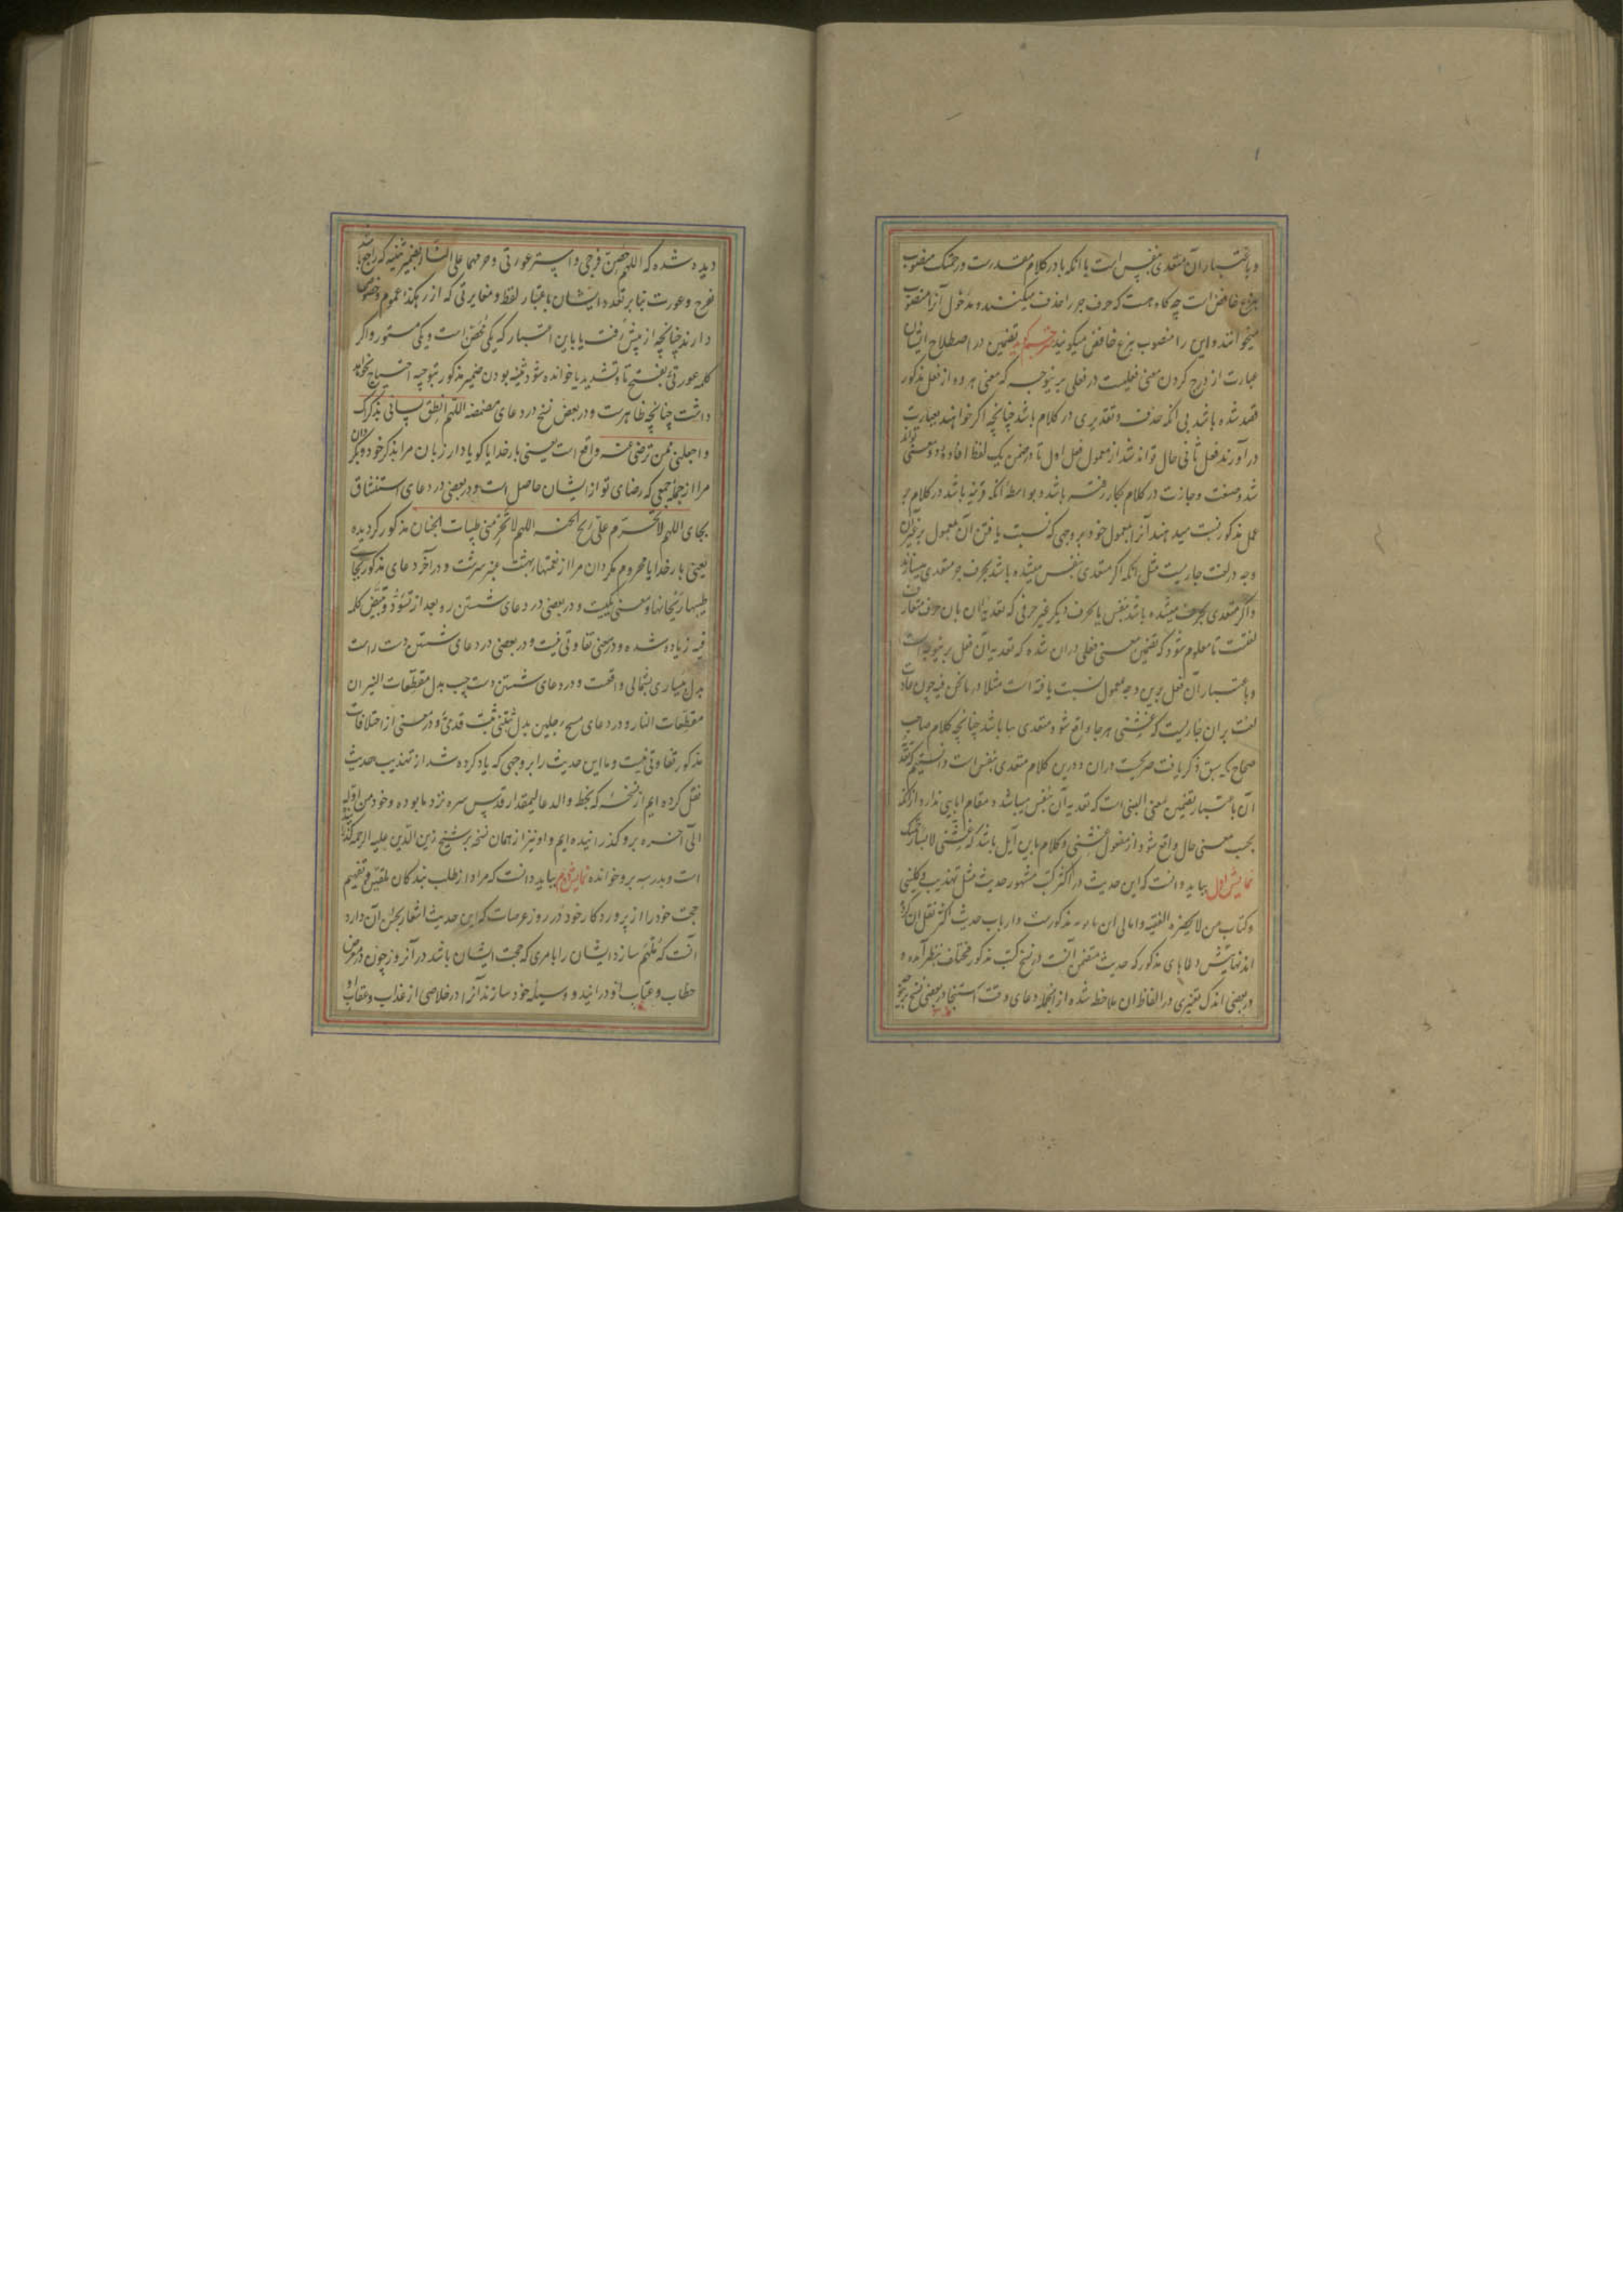 و باعتبار آن متعدی بنفس است یا انکه با در کلام مقدرست و رحمتک منصوب
بنزع خافض است چه کاه هست که حرف جر را حذف میکنند و مدخول آنرا منصوب
میخوانند و این را منصوب بنزع خافض میکویند تضمین در اصطلاح ایشان
عبارت از درج کردن معنی فعلیست در فعلی برینوجه که معنی هر دو از فعل مذکور
قصد شده باشد بی انکه حذف و تقدیری در کلام باشد چنانچه اکر خواهند بعبارت
در آورند فعل ثانی حال تواند شد از معمول فعل اول تا در ضمن یک لفظ افاده دو معنی تواند
شد و صنعت وجازت در کلام بکار رفته باشد و بواسطه انکه قرینه باشد در کلام بر
عمل مذکور نسبت میدهند آنرا بمعمول خود بر وجهی که نسبت یافتن آن بمعمول بر غیر آن
وجه در لغت جاریست مثل انکه اکر متعدی بنفس میشده باشد بحرف جر متعدی میسازند
و اکر متعدی بحرف میشده باشد بنفس یا بحرف دیکر غیر حرفی که تعدیه ان بان حرف متعارف
لغتست تا معلوم شود که تضمین معنی فعلی دران شده که تعدیه آن فعل برینوجه است
و باعتبار آن فعل برین وجه بمعمول نسبت یافته است مثلا در مانحن فیه چون عادت
لغت بران جاریست که غشنی هر جا واقع شود متعدی ببا باشد چنانچه کلام صاحب
صحاح که سبق ذکر یافت صریحست دران و درین کلام متعدی بنفس است دانستیم که تعدیه
آن باعتبار تضمین معنی البسنی است که تعدیه آن بنفس میباشد و مقام ابایی ندارد ازانکه
بحسب معنی حال واقع شود از مفعول غشنی و کلام باین آیل باشد که غشنی لابسا رحمتک
نمایش اول بباید دانست که این حدیث در اکثر کتب مشهور حدیث مثل تهذیب و کلینی
و کتاب من لا یحضره الفقیه و امالی ابن بابویه مذکورست و ارباب حدیث اکثر نقل ان کرده
اند نهایتش دعاهای مذکور که حدیث متضمن آنست در نسخ کتب مذکور مختلف بنظر آمده و
در بعضی اندک تغییری در الفاظ ان ملاحظه شده از انجمله دعای وقت استنجا در بعضی نسخ برینوجه
دیده شده که اللهم حصن فرجی و استر عورتی و حرمهما علی النار بضمیر تثنیه که راجع باشد
بفرج و عورت بنا بر تعدد ایشان باعتبار لفظ و مغایرتی که از رهکذر عموم و خصوص
دارند چنانچه از پیش رفت یا باین اعتبار که یکی محصن است و یکی مستور و اکر
کلمه عورتی بفتح تا و تشدید یا خوانده شود تثنیه بودن ضمیر مذکور بتوجیه احتیاج نخواهد
داشت چنانچه ظاهرست و در بعض نسخ در دعای مضمضه اللهم انطق لسانی بذکرک
و اجعلنی ممن ترضی عنه واقع است یعنی بار خدایا کویا دار زبان مرا بذکر خود و بکردان
مرا از جمله جمعی که رضای تو از ایشان حاصل است و در بعضی در دعای استنشاق
بجای اللهم لا تحرم علی ریح الجنه اللهم لا تحرمنی طیبات الجنان مذکور کردیده
یعنی بار خدایا محروم مکردان مرا از نعمتهای بهشت عنبر سرشت و در آخر دعای مذکور بجای
طیبها ریحانها و معنی یکیست و در بعضی در دعای شستن رو بعد از تسود و تبیض کلمه
فیه زیاده شده و در معنی تفاوتی نیست و در بعضی در دعای شستن دست راست
بدل بیساری بشمالی واقعست و در دعای شستن دست چپ بدل مقطعات النیران
مقطعات النار و در دعای مسح رجلین بدل ثبتنی ثبت قدمی و در معنی از اختلافات
مذکور تفاوتی نیست و ما این حدیث را بر وجهی که یاد کرده شد از تهذیب حدیث
نقل کرده ایم از نسخه که بخط والد عالیمقدار قدس سره نزد ما بوده و خود من اوله
الی آخره برو کذرانیده ایم و او نیز از همان نسخه بر شیخ زین الدین علیه الرحمه کذرانیده
است و بدرسه برو خوانده نمایش دوم بباید دانست که مراد از طلب بندکان تلقین و تفهیم
حجت خود را از پروردکار خود در روز عرصات که این حدیث اشعار بحسن آن دارد
آنست که ملهم سازد ایشان را بامری که حجت ایشان باشد در آنروز چون در معرض
خطاب و عتاب او درآیند و وسیله خود سازند آنرا در خلاصی از عذاب و عقاب او